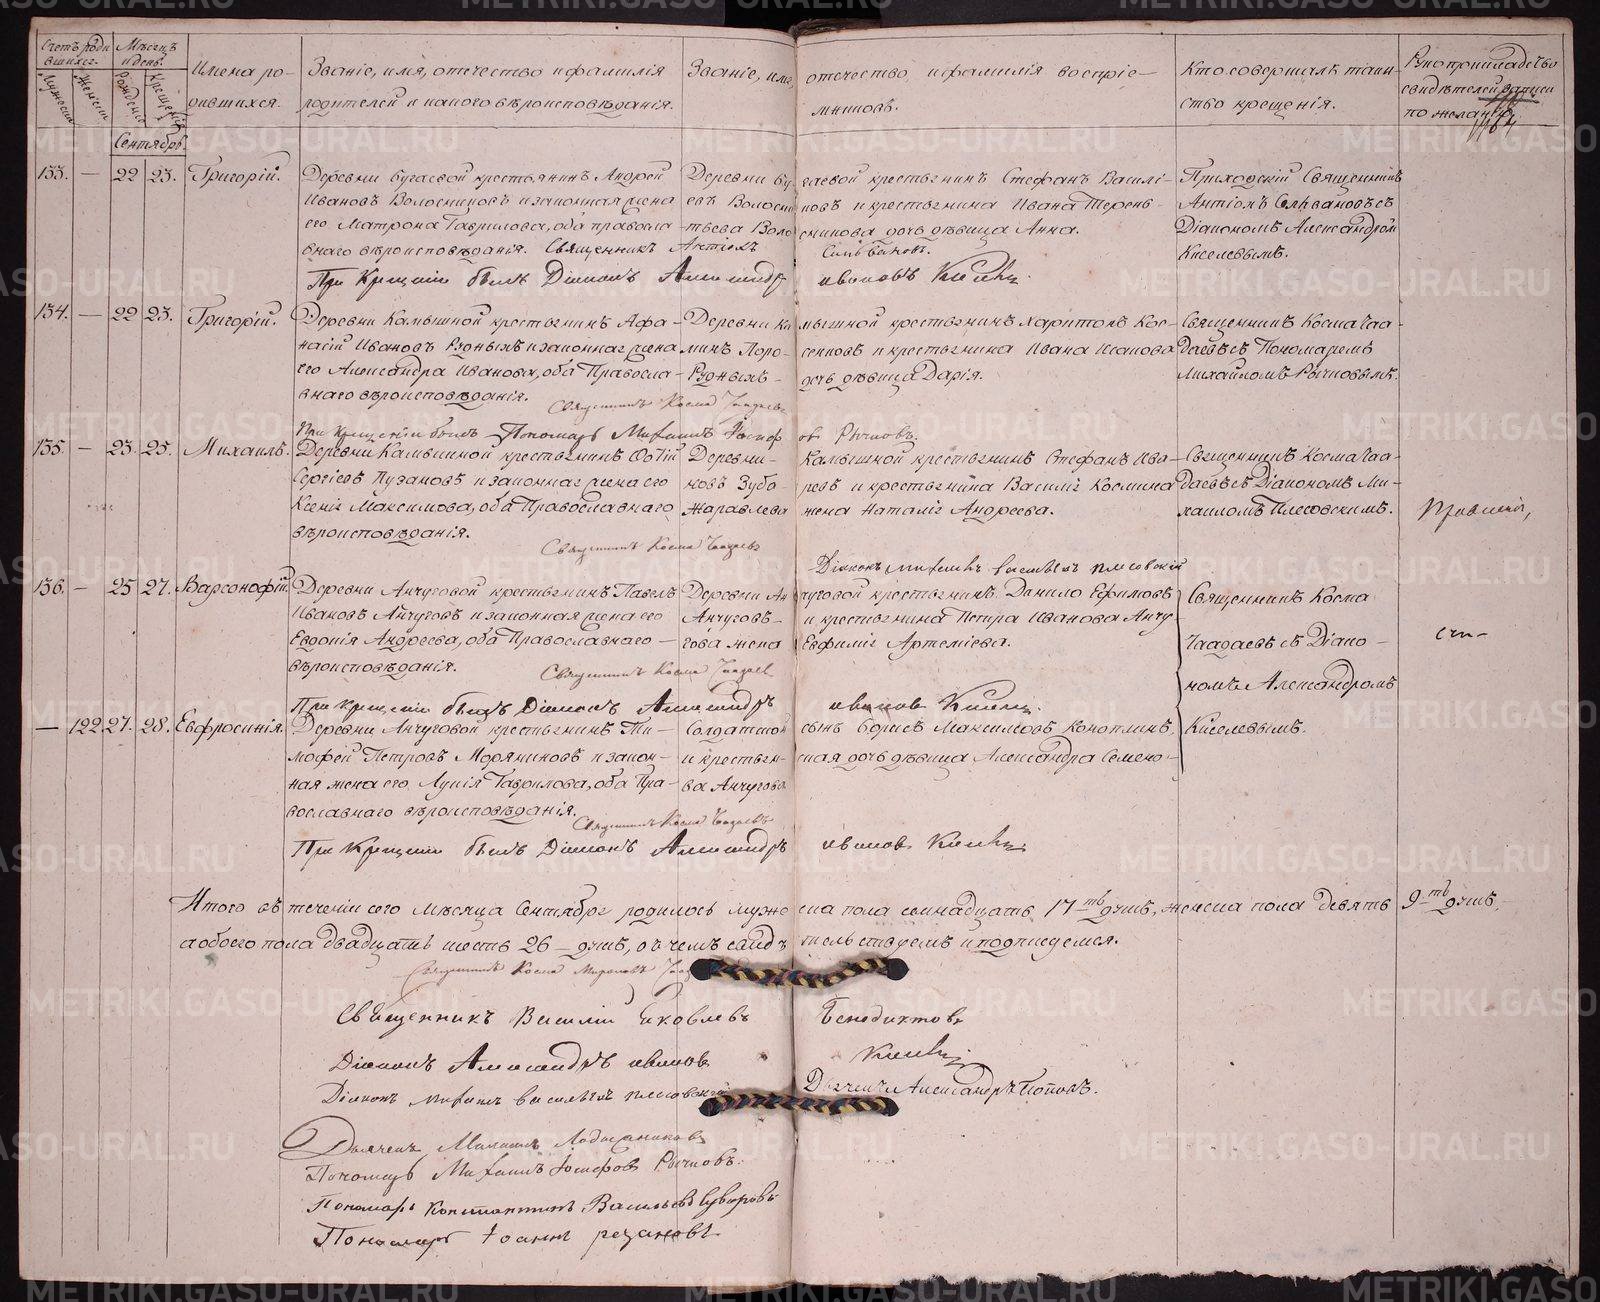 Счетъ роди
вшихся.
Мужеска
Женска
Мѣсяцъ
и день.
Рожденія
Крещенія
Имена ро-
дившихся.
Званіе, имя, отчество и фамилія
родителей и какого вѣроисповѣданія.
Званіе, имя, отчество и фамилія воспріе-
мниковъ.
Кто совершалъ таин-
ство крещенія.
Рукоприкладство
свидѣтелей записи
по желанію.
Сентябрь.
133. — 22 23. Григорій.
Деревни Бугаевой крестьянинъ Андрей
Ивановъ Волосниковъ и законная жена
его Матрона Гаврилова, оба правосла-
внаго вѣроисповѣданія. Священникъ Антіохъ Сельвановъ.
При Крещеніи былъ Діаконъ Александръ Ивановъ
Деревни Бугаевой крестьянинъ Стефанъ Василі-
евъ и крестьянина Ивана Терень-
тьева дочь дѣвица Анна.
Приходскій Священникъ
Антіохъ Сельвановъ съ
Діакономъ Александромъ
Киселевымъ.
134. — 22 23. Григорій.
Деревни Камышной крестьянинъ Афа-
насій Ивановъ Рудныхъ и законная жена
его Александра Иванова, оба Правосла-
внаго вѣроисповѣданія.
Священникъ Косма Чаадаевъ
При крещеніи былъ Пономарь Михаилъ Іосифовъ Рычковъ.
Деревни Камышной крестьянинъ Харитонъ Кос-
и крестьянина Ивана
Рудныхъ — дочь дѣвица Дарія.
Священникъ Косма Чаа-
даевъ съ Пономаремъ
Михайломъ Рычковымъ.
135. — 23. 25. Михаилъ.
Деревни Камышной крестьянинъ Фотій
Сергіевъ Пузановъ и законная жена его
Ксенія Максимова, оба Православнаго
вѣроисповѣданія.
Священникъ Косма Чаадаевъ
Деревни — Камышной крестьянинъ Стефанъ Ива-
новъ Зубаревъ и крестьянина Василія Космина
Жаравлева жена Наталія Андреева.
Діаконъ Михаилъ Васильевъ Плесовскій
Священникъ Косма Чаа-
даевъ съ Діакономъ Ми-
хаиломъ Плесовскимъ.
136. — 25 27. Варсонофій.
Деревни Анчуговой крестьянинъ Павелъ
Ивановъ Анчуговъ и законная жена его
Евдокія Андреева, оба Православнаго —
вѣроисповѣданія.
Священникъ Косма Чаадаев
При крещеніи былъ Діаконъ Александръ Ивановъ
Деревни Анчуговой крестьянинъ Данило Ефимовъ
Анчуговъ — и крестьянина Петра Иванова Анчу-
гова жена Евфимія Артеміева.
Священникъ Косма
Чаадаевъ съ Діако-
номъ Александромъ
Киселевымъ.
— 122. 27. 28. Евфросинія.
Деревни Анчуговой крестьянинъ Ти-
мофей Петровъ Моряниковъ и закон-
ная жена его Лукія Гаврилова, оба Пра-
вославнаго вѣроисповѣданія.
Священникъ Косма Чаадаевъ
При Крещеніи былъ Діаконъ Александръ Ивановъ
Солдатской сынъ Борисъ Максимовъ Коноплинъ,
и крестьянская дочь дѣвица Александра Семено-
ва Анчугова
Итого въ теченіи сего мѣсяца Сентября родилось мужеска пола семнадцать, 17-ть душъ, женска пола девять 9-ть душъ,
а обоего пола двадцать шесть 26 — душъ, въ чемъ свидѣтельствуемъ и подписуемся.
Священникъ Косма Мироновъ
Священникъ Василій Яковлевъ Бенедиктовъ
Діаконъ Александръ Ивановъ
Діаконъ Михаилъ Васильевъ Плесовскій
Дьячекъ Александръ Поповъ.
Дьячекъ
Пономарь Михаилъ Іосифовъ Рычковъ.
Пономарь Константинъ Васильевъ
Пономарь Іоаннъ
METRIKI.GASO-URAL.RU